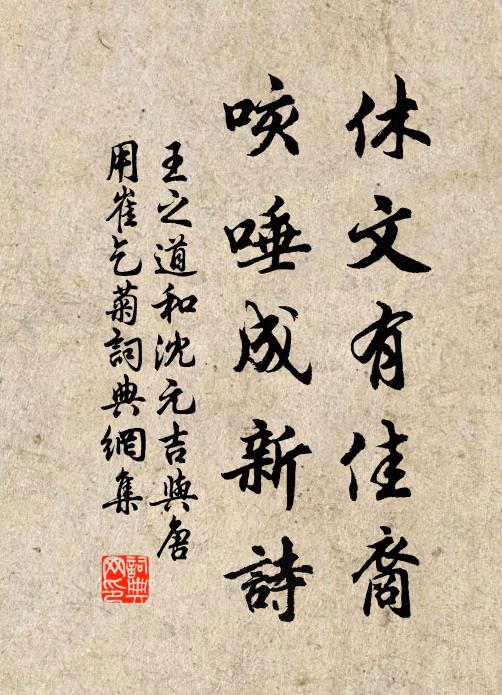 休文有佳裔
咳唾成新詩
王之道和沈元吉與唐
用崔乞菊詞典網集
詞典
网印